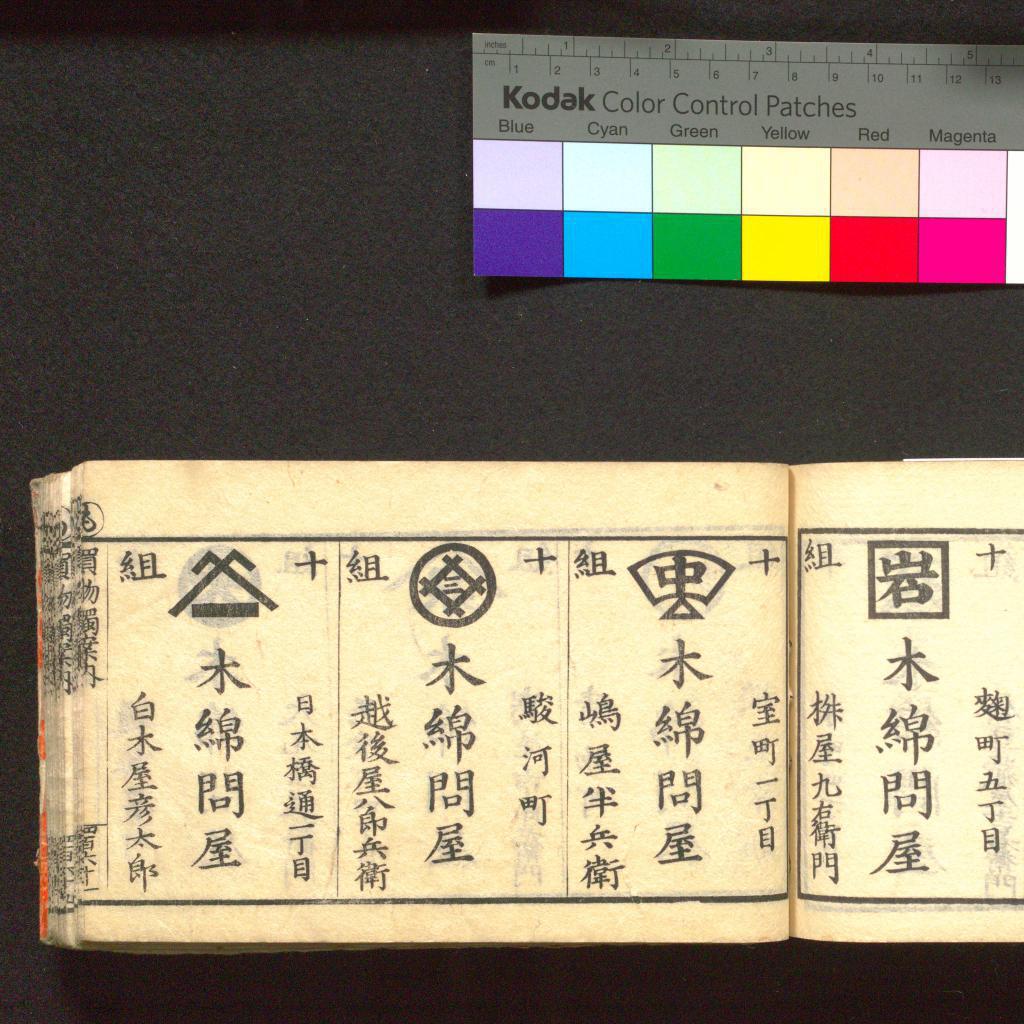 inches 1 2 3 4 5
cm 1 2 3 4 5 6 7 8 9 10 11 12 13
Kodak Color Control Patches
Blue Cyan Green Yellow Red Magenta
十 岩 組
麹町五丁目
木綿問屋
桝屋九右衛門
十 虫 組
室町一丁目
木綿問屋
嶋屋半兵衛
十 三 組
駿河町
木綿問屋
越後屋八郎兵衛
十 組
日本橋通一丁目
木綿問屋
白木屋彦太郎
も
買物獨案内